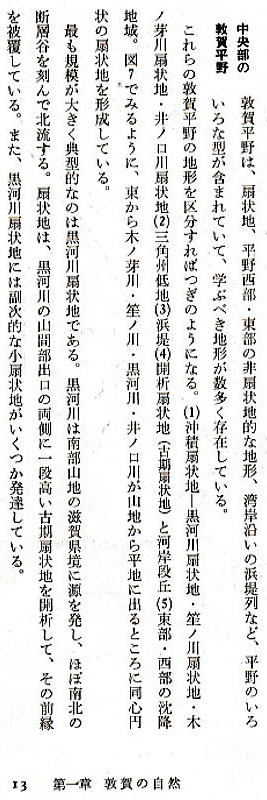 中央部の
敦賀平野
敦賀平野は、扇状地、平野西部・東部の非扇状地的な地形、湾岸沿いの浜堤列など、平野のいろ
いろな型が含まれていて、学ぶべき地形が数多く存在している。
これらの敦賀平野の地形を区分すればつぎのようになる。(1)沖積扇状地―黒河川扇状地・笙ノ川扇状地・木
ノ芽川扇状地・井ノ口川扇状地(2)三角州低地(3)浜堤(4)開析扇状地(古期扇状地)と河岸段丘(5)東部・西部の沈降
地域。図7でみるように、東から木ノ芽川・笙ノ川・黒河川・井ノ口川が山地から平地に出るところに同心円
状の扇状地を形成している。
最も規模が大きく典型的なのは黒河川扇状地である。黒河川は南部山地の滋賀県境に源を発し、ほぼ南北の
断層谷を刻んで北流する。扇状地は、黒河川の山間部出口の両側に一段高い古期扇状地を開析して、その前縁
を被覆している。また、黒河川扇状地には副次的な小扇状地がいくつか発達している。
13 第一章 敦賀の自然